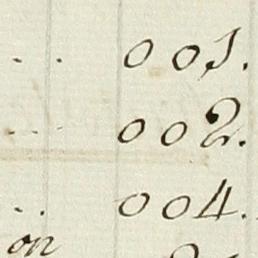 . . 001.
. . . 002.
. . 004.
on